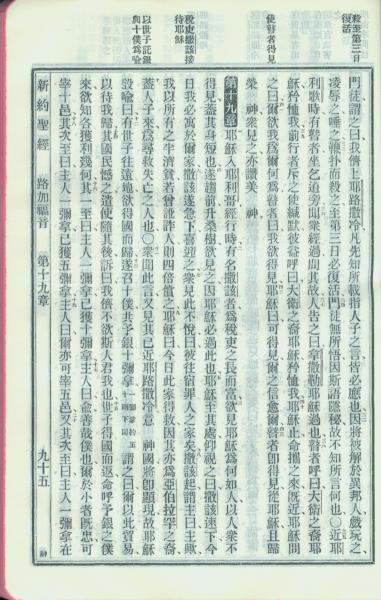 殺至第三日
復活
使瞽者得見
稅吏撒該接
待耶穌
以世子託銀
與十僕爲喻
門徒謂之曰我儕上耶路撒冷凡先知載指人子之言皆必應也因將被解於異邦人戲玩之
凌辱之唾之鞭扑而殺之至第三日必復活門徒無所悟因斯語隱秘故不知所言何也○近耶
利歌時有瞽者坐乞道旁聞衆經過問其故人告之曰拿撒勒耶穌過也瞽者呼曰大衛之裔耶
穌矜恤我前行者斥之使緘默彼益呼曰大衛之裔矜恤我耶穌止命攜之來旣近耶穌問
之曰爾欲我爲爾何爲瞽者曰我欲得見耶穌曰可得見爾之信愈爾瞽者卽得見從耶穌且歸
榮 神衆見之亦讚美 神
第十九章 耶穌入耶利哥經行時有名撒該者爲稅吏之長而富欲見耶穌爲何如人以人衆不
得見蓋其身短也遂趨前升桑樹欲見之因耶穌必過此也耶穌至其處仰視之曰撒該速下今
日我必寓於爾家撒該遂急下喜迎之衆見此不悅曰彼往宿罪人之家矣撒該起謂主曰主歟
我以所有之半濟貧若曾訛詐人則四倍償之耶穌曰今日此家得救因其亦爲亞伯拉罕之裔
蓋人子來爲尋救失亡之人也○衆聞此言又見其已近耶路撒冷意 神國將卽顯現故耶穌
設喻曰有世子往遠地欲得國而歸遂召十僕共予銀十彌拿 謂之曰爾以此貿易
以待我歸其國民憾之遣使隨其後訴曰我儕不欲斯人君我也世子得國而返命呼予銀之僕
來欲知各獲利幾何其一至曰主人一彌拿已獲十彌拿主人曰俞善哉僕也爾於小者旣忠可
宰十邑其次至曰主人一彌拿已獲五彌拿主人曰爾亦可宰五邑又其次至曰主人一彌拿在
新約聖經 路加福音 第十九章 九十五 神